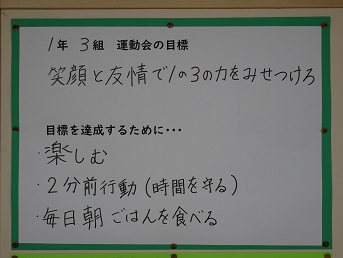 1年 3組 運動会の目標
笑顔と友情で1の3の力をみせつけろ
目標を達成するために・・・
・楽しむ
・2分前行動（時間を守る）
・毎日朝ごはんを食べる